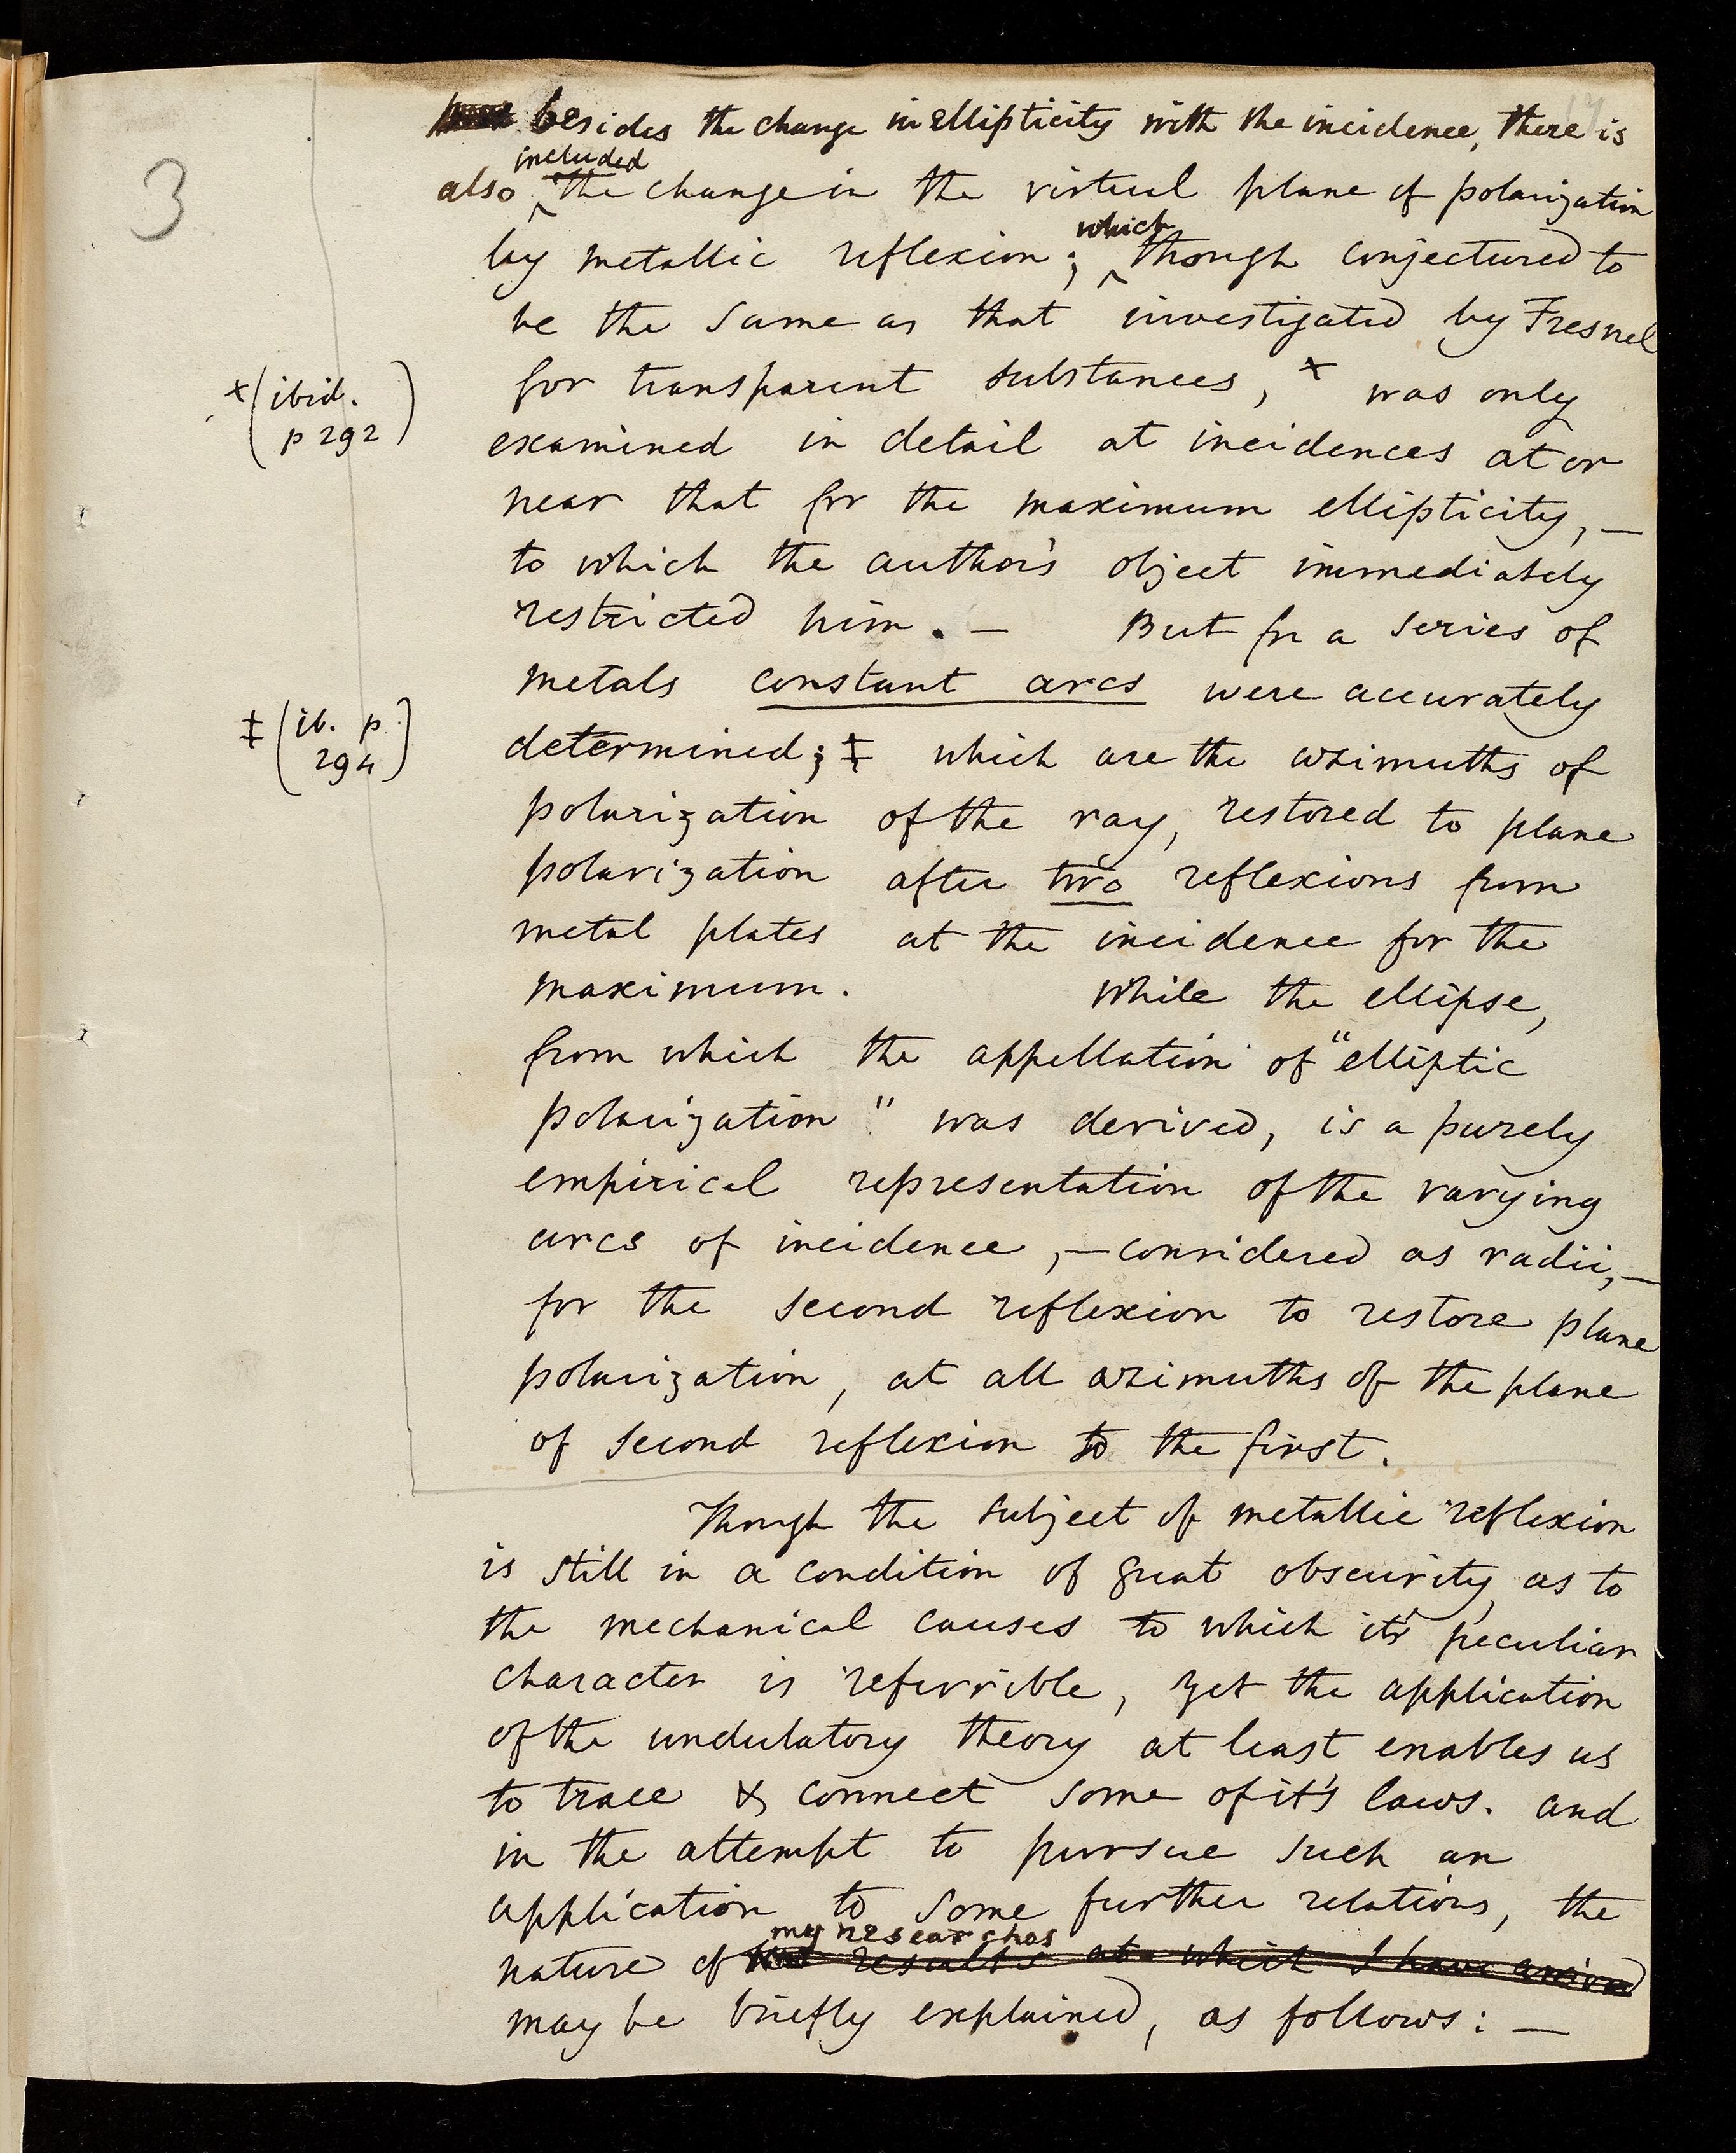 besides the change in ellipticity with the incidence, there is
included
also the change in the virtual plane of polarization
which
by metallic reflexion; though conjectured to
be the same as that investigated by Fresnel
for transparent substances, x was only
x (ibid.
p 292)
examined in detail at incidences at or
near that for the maximum ellipticity, —
to which the author's object immediately
restricted him. — But for a series of
metals constant arcs were accurately
‡ (ib. p.
294)
determined; ‡ which are the azimuths of
polarization of the ray, restored to plane
polarization after two reflexions from
metal plates at the incidence for the
maximum. While the ellipse,
from which the appellation of "elliptic
polarization" was derived, is a purely
empirical representation of the varying
arcs of incidence, — considered as radii, —
for the second reflexion to restore plane
polarization, at all azimuths of the plane
of second reflexion to the first.
Though the subject of metallic reflexion
is still in a condition of great obscurity, as to
the mechanical causes to which it's peculiar
character is referrible, yet the application
of the undulatory theory at least enables us
to trace & connect some of it's laws. and
in the attempt to pursue such an
application to some further relations, the
my researches
nature of results at which I have arrived
may be briefly explained, as follows: —
3